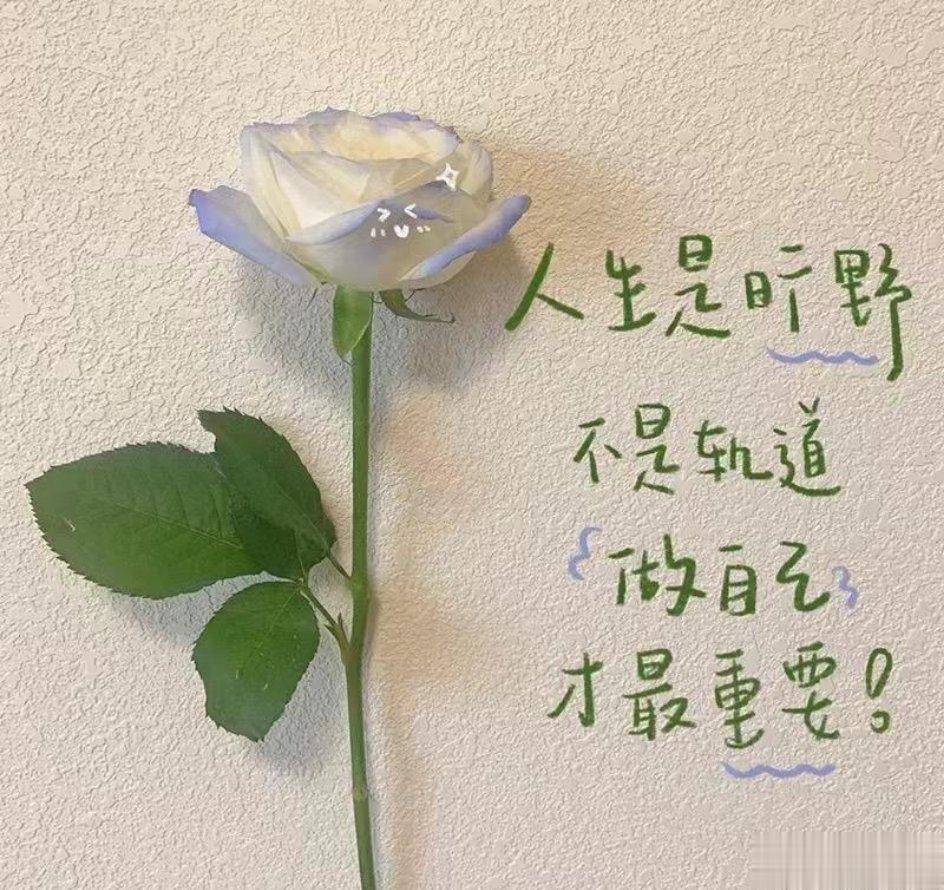 人生是旷野
不是轨道
做自己
才最重要!